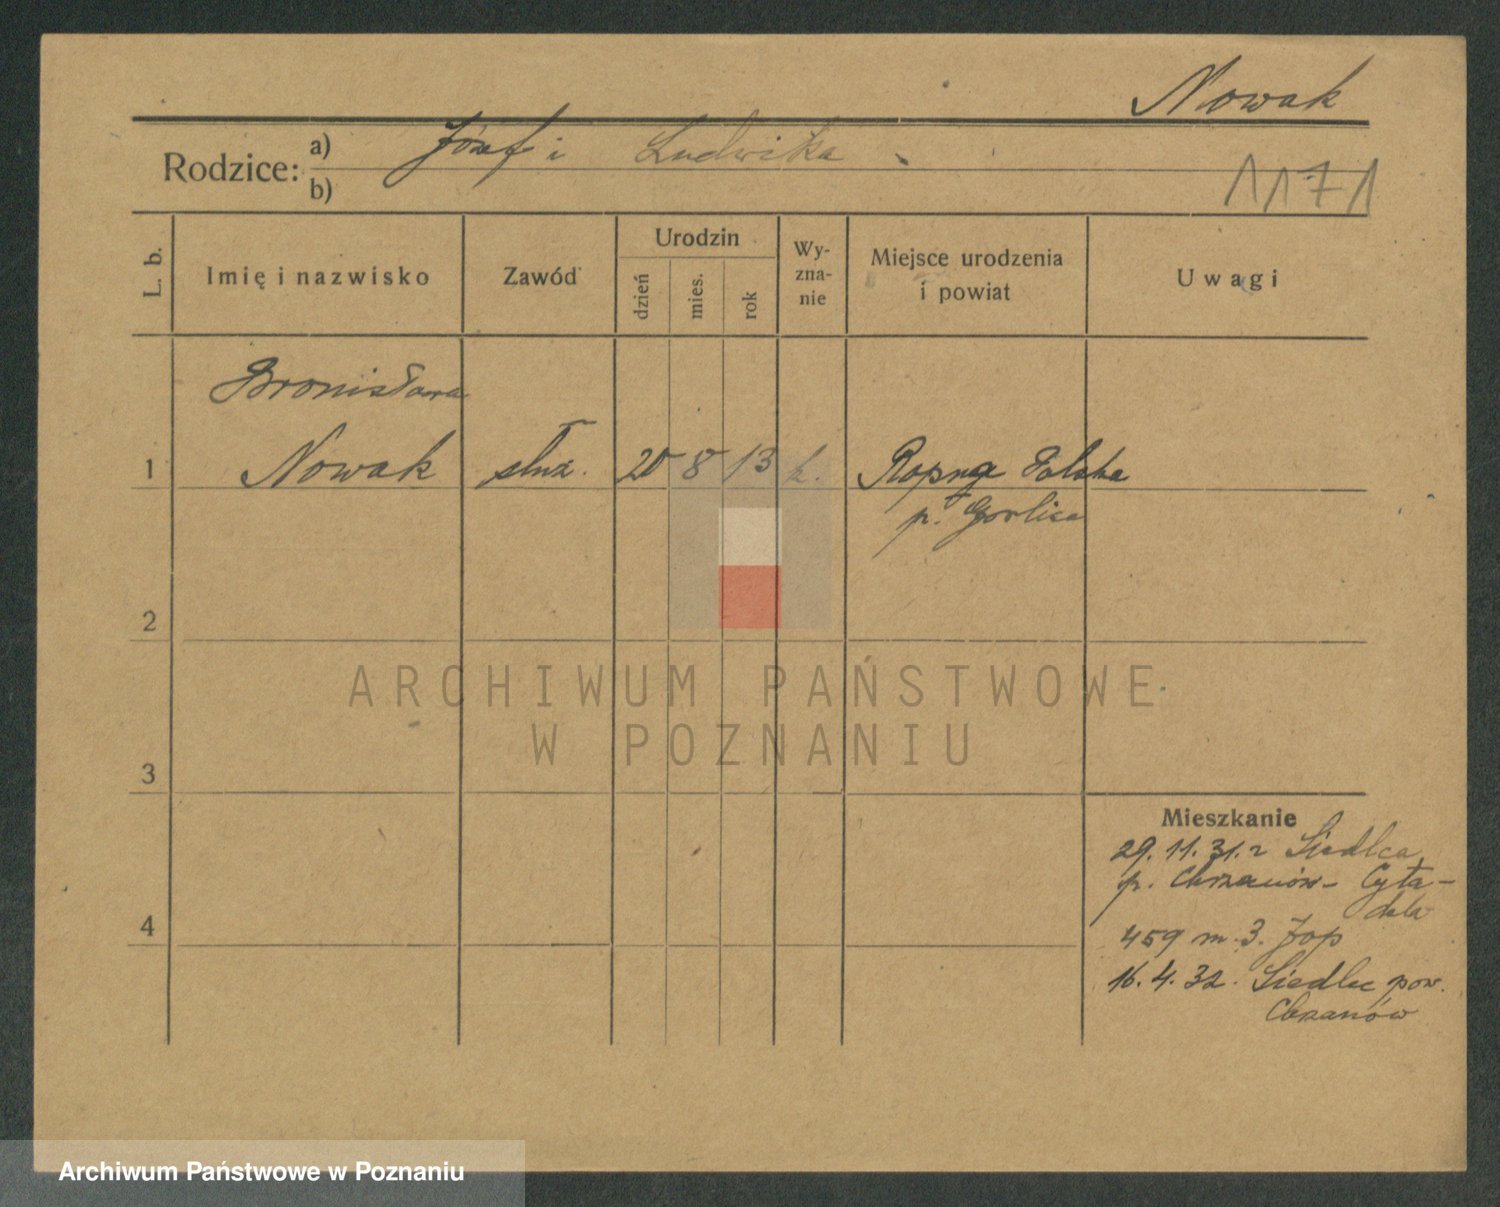 Nowak
Rodzice: a) Józef i Ludwika
b)
1171
L. b. Imię i nazwisko Zawód Urodzin dzień mies. rok Wy-zna-nie Miejsce urodzenia i powiat Uwagi
Bronisława
1 Nowak służ. 20 8 13 k. Ropa Polska
p. Gorlice
2
ARCHIWUM PAŃSTWOWE
W POZNANIU
3
Mieszkanie
29. 11. 31. r Siedlca
p. Chrzanów - Cyta-
4 dela
459 m. 3. Jop
16. 4. 32. Siedlec pow.
Chrzanów
Archiwum Państwowe w Poznaniu